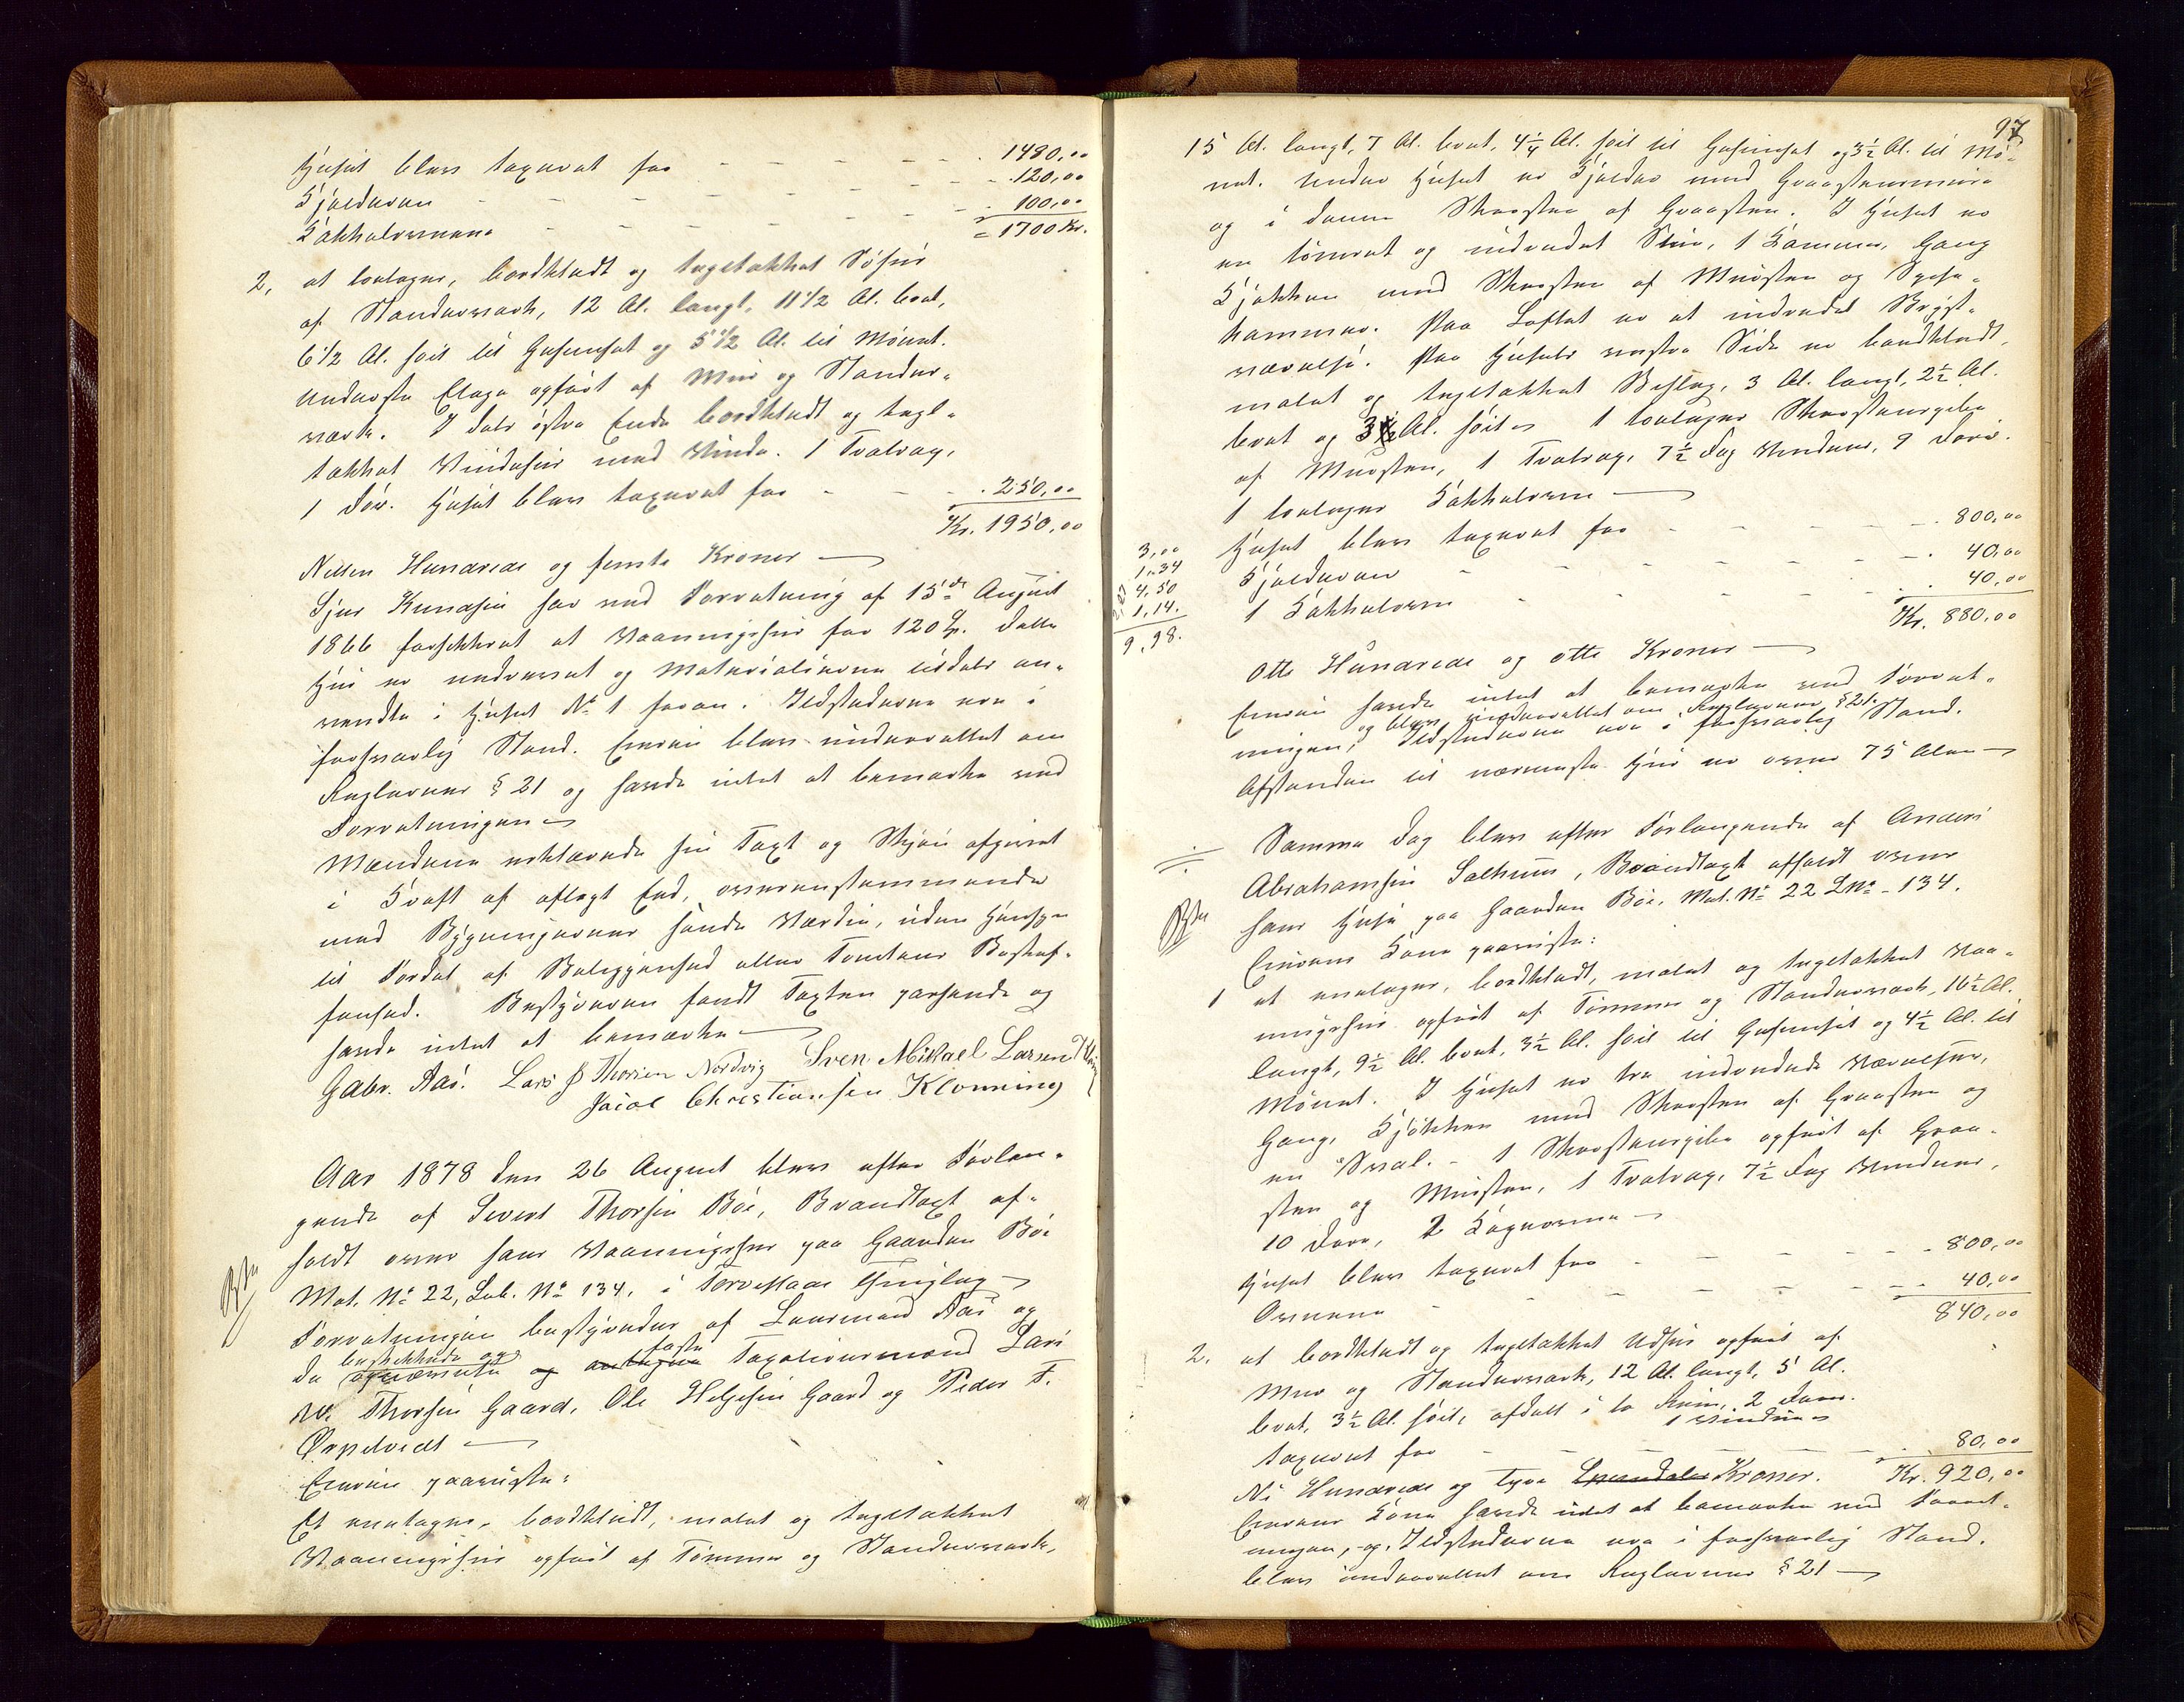 Huset blev taxeret for - - - - - 1480,00
Kjelderen - - - - - 120,00
Kakkelovnene - - - - - 100,00
= 1700 Kr.
2, et toetages, bordklædt og tegltækket Søhus
af Stenderværk, 12 Al. langt, 11 1/2 Al. bredt,
6 1/2 Al. høit til Gesimset og 5 1/2 Al. til Mønet.
Underste Etage opført af Muur og Stender-
værk. I dets østre Ende bordklædt og tegl-
tækket Vindehus med Vinde. 1 Tvætrap,
1 Dør. Huset blev taxeret for - - - 250,00
Kr. 1950,00
Nitten Hundrede og femti Kroner
Sjur Knudsen har ved Forretning af 15de August
1866 forsikkret et Vaaningshus for 120 Sp. Dette
Hus er nedrevet og Materialierne tildels an-
vendte i Huset No 1 foran. Ildstederne ere i
forsvarlig Stand. Eieren blev underrettet om
Reglernes § 21 og havde intet at bemærke ved
Forretningen
Mændene erklærede sin Taxt og Skjøn afgivet
i Kraft af aflagt Eed, overensstemmende
med Bygningernes sande Værdie, uden Hensyn
til Fordel af Beliggenhed eller Tomtens Beskaf-
fenhed. Bestyreren fandt Taxten passende og
havde intet at bemærke
Gabr. Aas. Lars J Thorsen Nordvig Sven Mikael Larsen
Jacob Christiansen Klonning
Aar 1878 den 26 August blev efter Forlan-
gende af Sivert Thorsen Bøe, Brandtaxt af-
holdt over hans Vaaningshus paa Gaarden Bøe
Mat. No 22, Løb. No 134, i Torvestads Thinglag
Forretningen bestyredes af Lensmand Aas og
beskikkede og faste
de opnævnte og antagne Taxationsmænd Lars
M. Thorsen Gaard, Ole Helgesen Gaard og Peder T.
Øspelvedt
Eieren paaviste:
Et enetages, bordklædt, malet og tegltækket
Vaaningshus opført af Tømmer og Stenderværk,
97
15 Al. langt, 7 Al. bredt, 4 1/4 Al. høit til Gesimset og 3 1/2 Al. til Mø-
net. Under Huset er Kjelder med Graastensmure
og i denne Skorsten af Graasten. I Huset er
en tømret og indredet Stue, 1 Kammer, Gang
Kjøkken med Skorsten af Mursten og Spise-
kammer. Paa Loftet er et indredet Bryst-
værelse. Paa Husets vestre Side er bordklædt,
malet og tegltækket Bislag, 3 Al. langt, 2 1/2 Al.
bredt og 3 Al. høit. 1 toetages Skorstenspibe
af Mursten, 1 Tvætrap, 7 1/2 Fag Vinduer, 9 Døre.
1 toetages Kakkelovn
Huset blev taxeret for - - - - 800,00
Kjelderen - - - - 40,00
1 Kakkelovn - - - - 40,00
Kr. 880,00
3,00
1,34
4,50
1,14.
9,98.
Otte Hundrede og otti Kroner
Eieren havde intet at bemærke ved Forret-
og blev underrettet om Reglernes § 21.
ningen, Ildstederne ere i forsvarlig Stand.
Afstanden til nærmeste Hus er over 75 Alen
Samme Dag blev efter Forlangende af Anders
Abrahamsen Salhuus, Brandtaxt afholdt over
hans Huse paa Gaarden Bøe, Mat. No 22 LNo 134.
Eierens Kone paaviste:
1 et enetages, bordklædt, malet og tegltækket Vaa-
ningshus opført af Tømmer og Stenderværk, 16 1/2 Al.
langt, 9 1/2 Al. bredt, 3 1/2 Al. høit til Gesimset og 4 1/2 Al. til
Mønet. I Huset er tre indredede Værelser,
Gang, Kjøkken med Skorsten af Graasten og
en Sval. - 1 Skorstenspibe opført af Graa-
sten og Mursten, 1 Tvætrap, 7 1/2 Fag Vinduer,
10 Døre, 2 Kogeovne
Huset blev taxeret for - - - - 800,00
Ovnene - - - - 40,00
840,00
2. et bordklædt og tegltækket Udhus opført af
Mur og Stenderværk, 12 Al. langt, 5 Al.
bredt, 3 1/2 Al. høit, afdelt i to Rum, 2 Døre.
1 Vindue
taxeret for - - - - 80,00
Ni Hundrede og tyve Speciedaler Kroner. Kr. 920,00
Eierens Kone havde intet at bemærke ved Forret-
ningen, og Ildstederne ere i forsvarlig Stand.
blev underrettet om Reglernes § 21